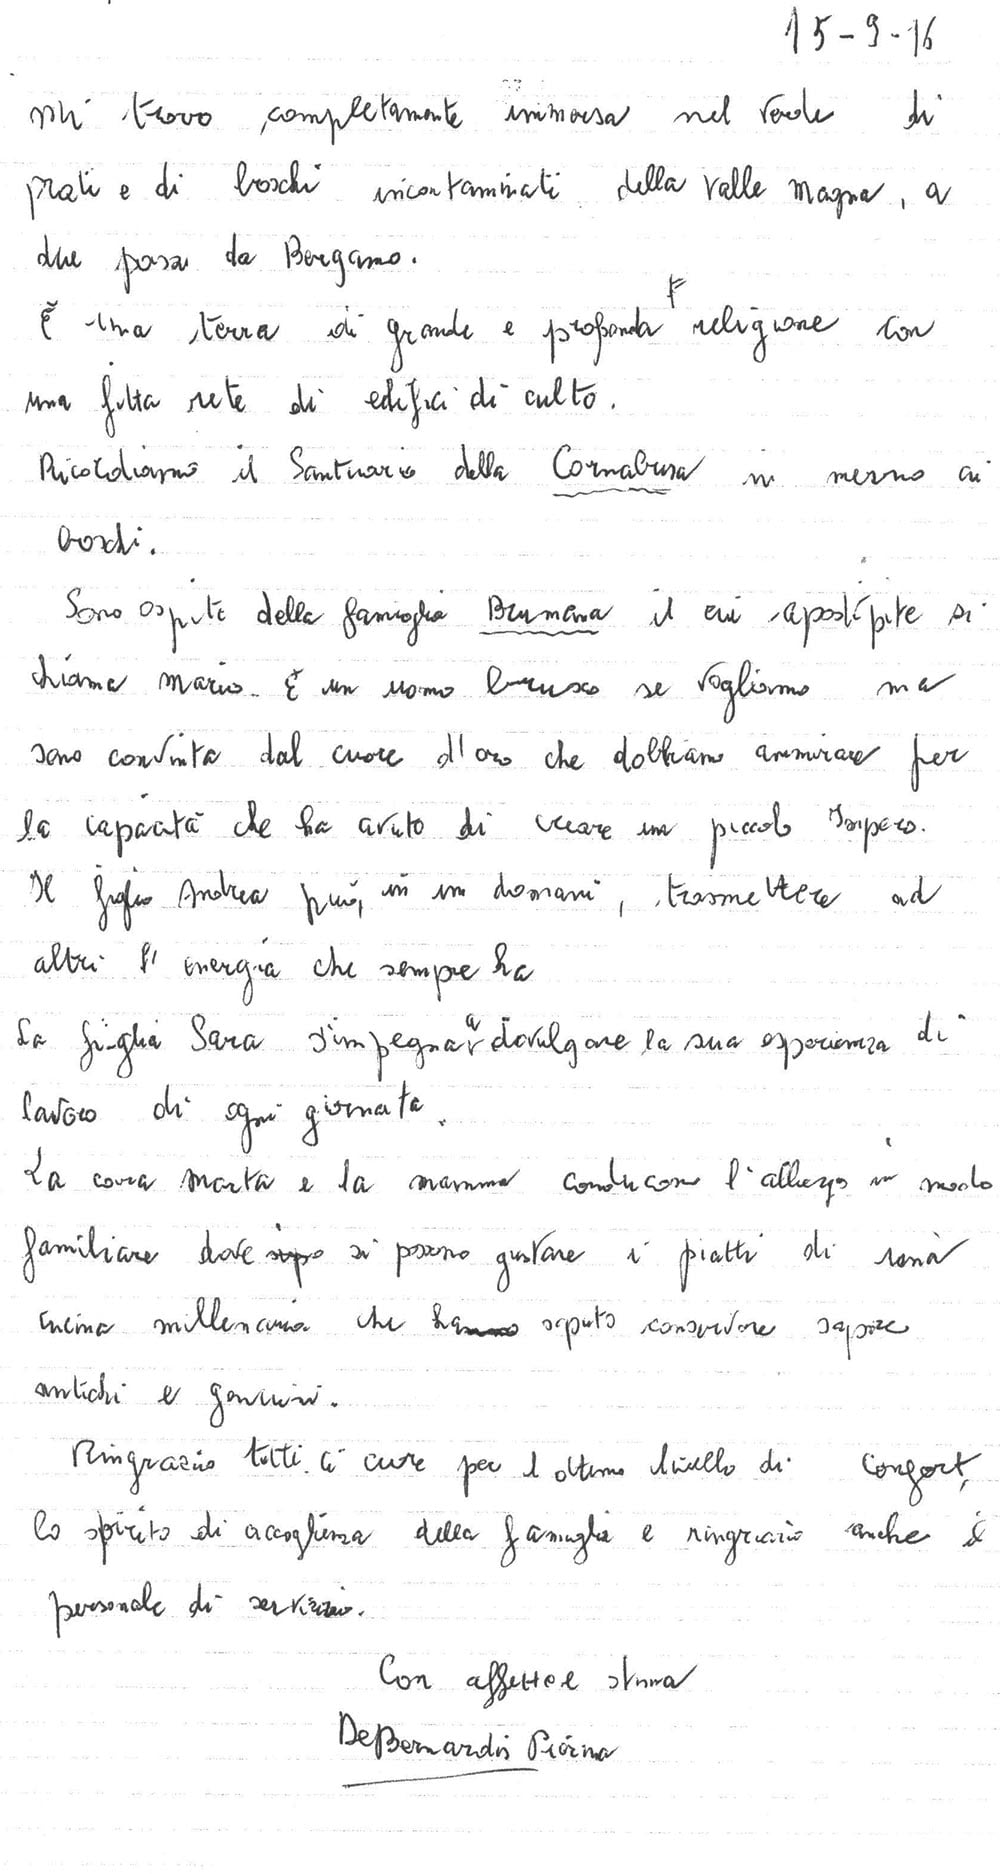 15-9-16
Mi trovo completamente immersa nel verde di
prati e di boschi incontaminati della valle Magna, a
due passi da Bergamo.
È una terra di grande e profonda religione con
una fitta rete di edifici di culto.
Ricordiamo il Santuario della Cornabusa in mezzo ai
boschi.
Sono ospite della famiglia Brumana il cui apostipite si
chiama Mario. È un uomo brusco se vogliamo ma
sono convinta dal cuore d'oro che dobbiamo ammirare per
la capacità che ha avuto di creare un piccolo Impero.
Il figlio Andrea può, in un domani, trasmettere ad
altri l'energia che sempre ha
La figlia Sara s'impegna a divulgare la sua esperienza di
lavoro di ogni giornata.
La cara Marta e la mamma conducono l'albergo in modo
familiare dove si possono gustare i piatti di
cucina millenaria che ha saputo conservare sapore
antichi e genuini.
Ringrazio tutti per l'ottimo livello di confort,
lo spirito di accoglienza della famiglia e ringrazio anche il
personale di servizio.
Con affetto e stima
DeBernardis Pierina